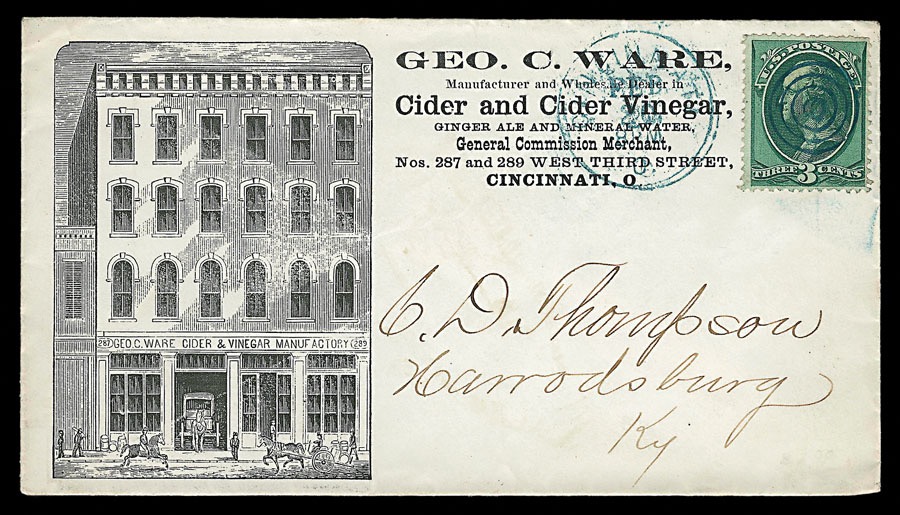 GEO. C. WARE,
Manufacturer and Wholesale Dealer in
Cider and Cider Vinegar,
GINGER ALE AND MINERAL WATER,
General Commission Merchant,
Nos. 287 and 289 WEST THIRD STREET,
CINCINNATI, O.
U.S. POSTAGE
THREE 3 CENTS
287 GEO. C. WARE CIDER & VINEGAR MANUFACTORY 289
C. D. Thompson
Harrodsburg
Ky